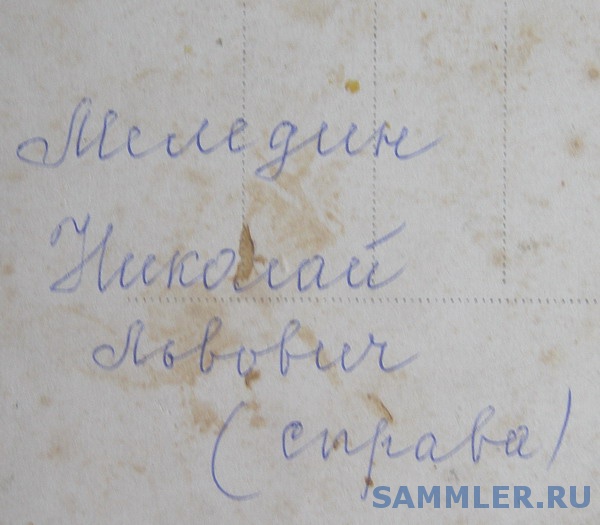 Меледин
Николай
Львович
(справа)
SAMMLER.RU